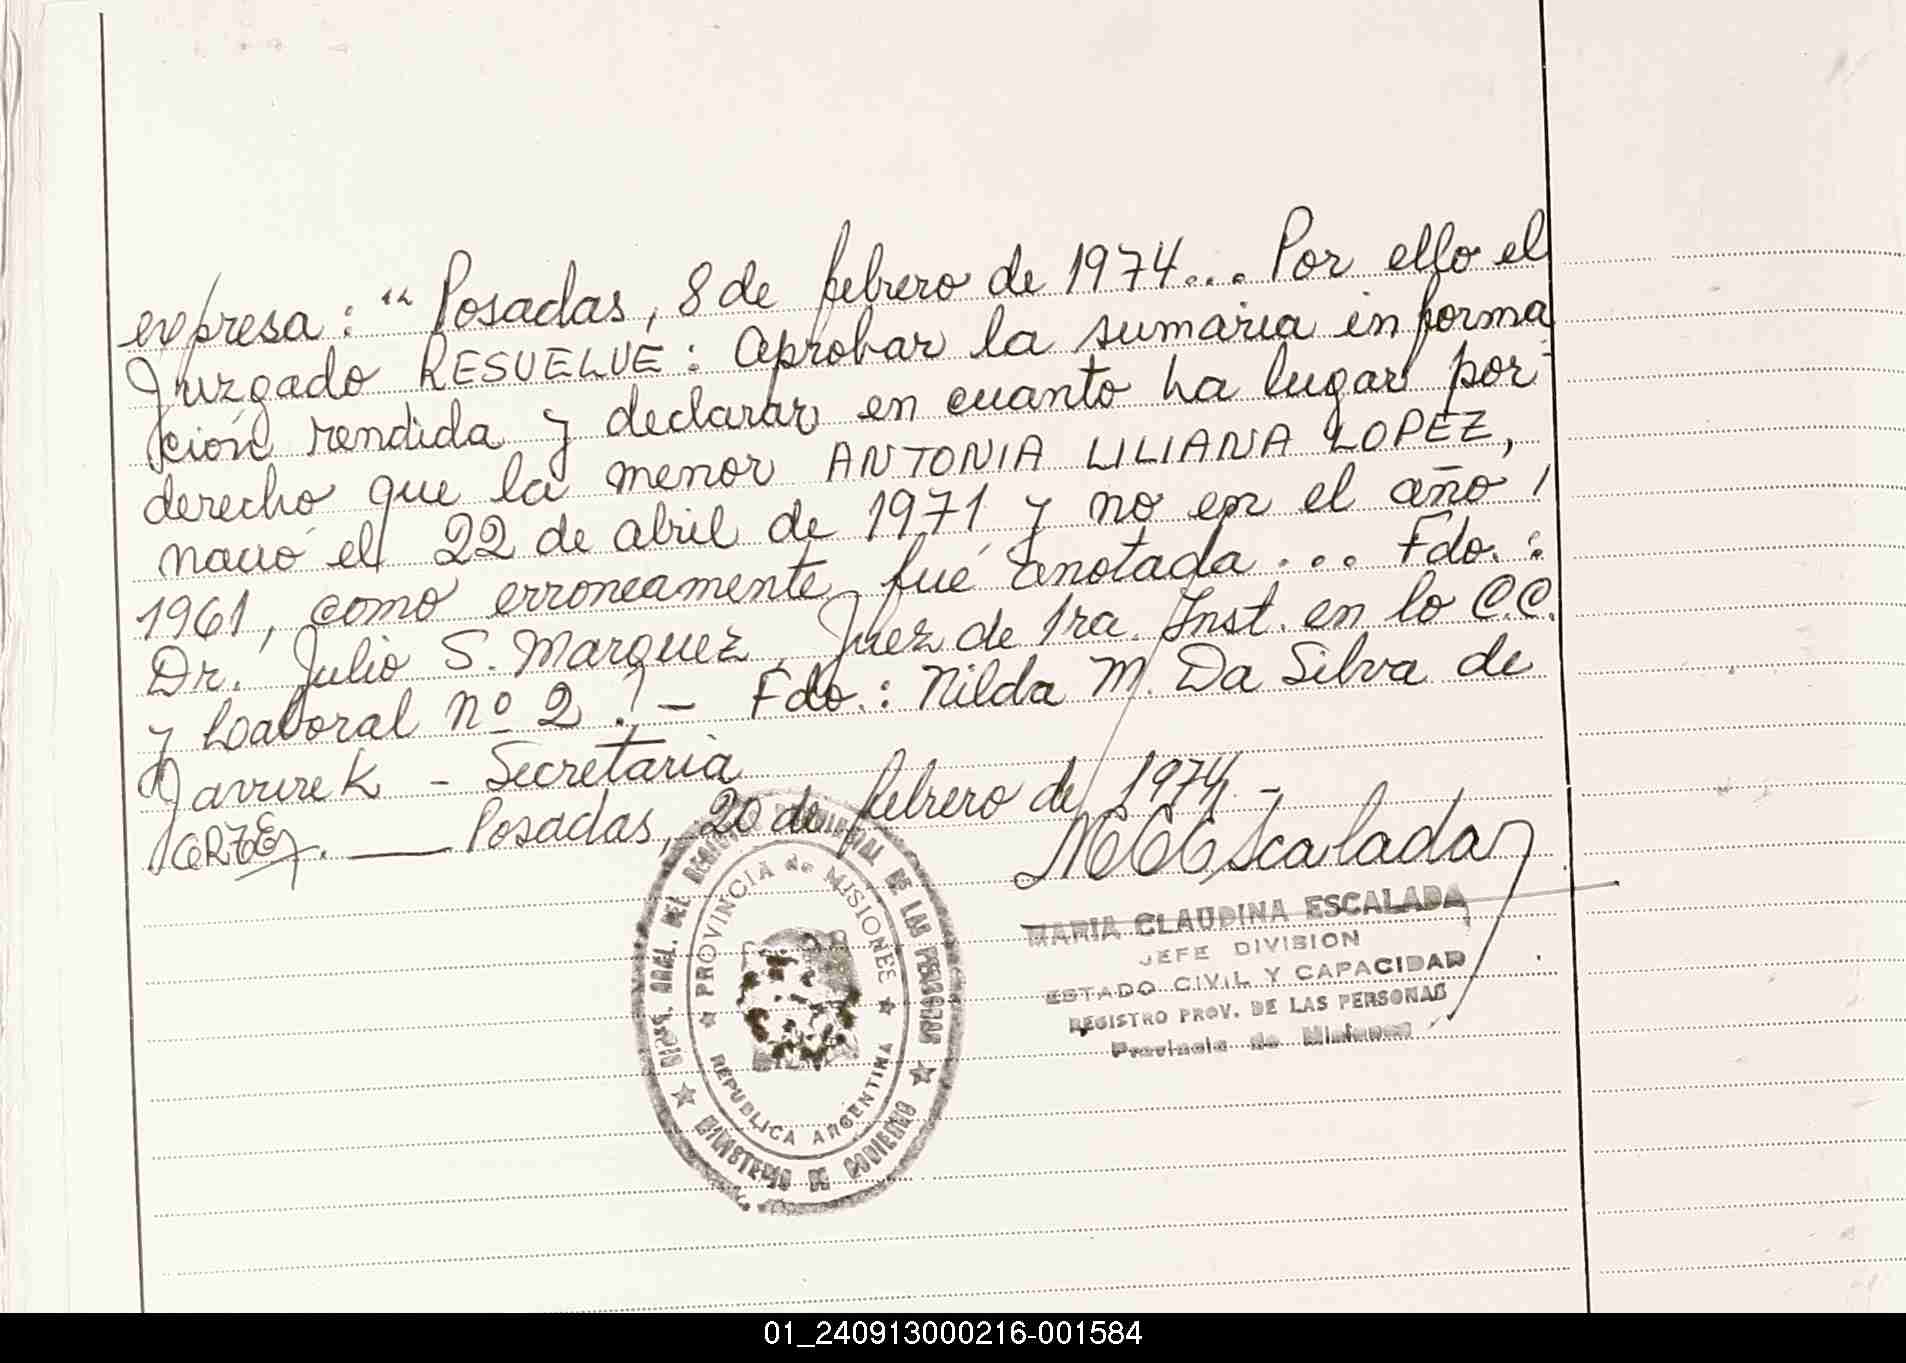 expresa: "Posadas, 8 de febrero de 1974... Por ello el
Juzgado RESUELVE: Aprobar la sumaria informa
ción rendida y declarar en cuanto ha lugar por
derecho que la menor ANTONIA LILIANA LOPEZ,
nació el 22 de abril de 1971 y no en el año
1961, como erroneamente fué anotada... Fdo.:
Dr. Julio S. Marquez, Juez de 1ra. Inst. en lo C.C.
y Laboral nº 2". - Fdo.: Nilda M. Da Silva de
- Secretaria
Posadas, 20 de febrero de 1974.-
MCEscalada
MARIA CLAUDINA ESCALADA
JEFE DIVISION
ESTADO CIVIL Y CAPACIDAD
REGISTRO PROV. DE LAS PERSONAS
Provincia de Misiones
PROVINCIA de MISIONES
REPUBLICA ARGENTINA
DE LAS PERSONAS
MINISTERIO DE GOBIERNO
01_240913000216-001584